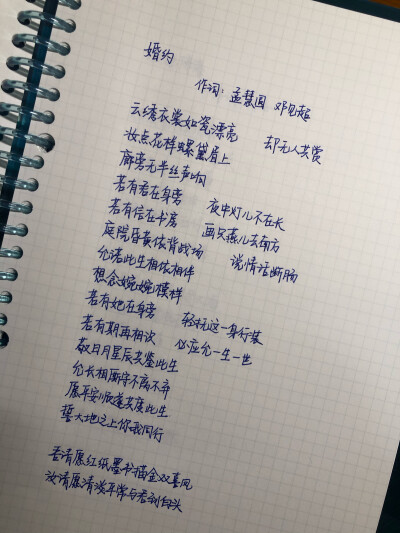 婚约
作词：孟慧圆 邓见超
云绣衣裳如瓷漂亮 却无人共赏
妆点花样螺黛眉上
廊旁无半丝声响
若有君在身旁 夜中灯儿不在长
若有信在书房 画只燕儿去南方
庭院昏黄依背战场 说情话断肠
允诺此生相依相伴
想念婉婉模样
若有她在身旁 轻抚这一身行装
若有期再相谈 必应允一生一世
敬日月星辰共鉴此生
允长相厮守不离不弃
愿平安顺遂共度此生
誓天地之上你我同行
吾清愿红纸墨书描金双喜凤
汝清愿清浅平常与君到白头